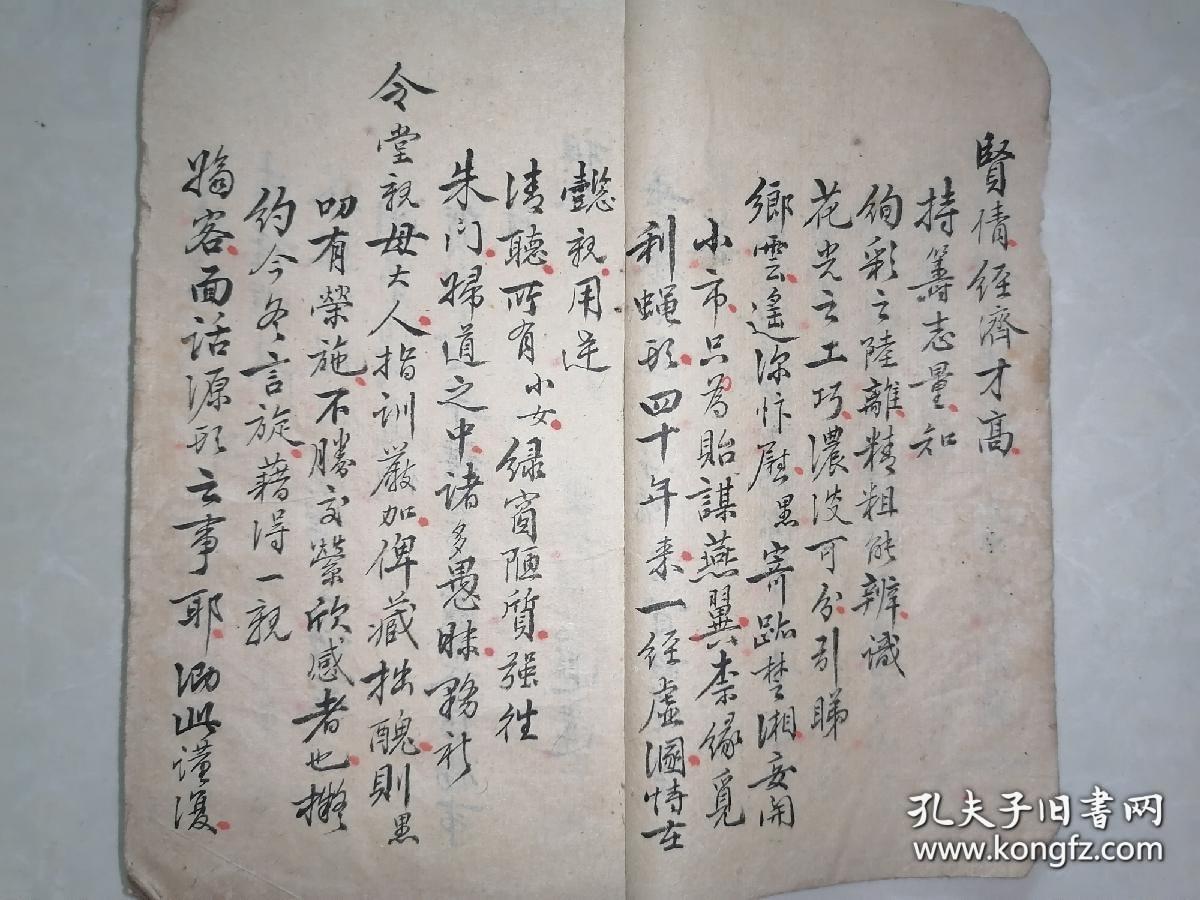 賢倩經濟才高
持籌志量知
絢彩之陸離精粗能辨識
花光之工巧濃淡可分引睇
鄉雲遙深忭慰黑寄跡楚湘妄開
小市只為貽謀燕翼本緣覓
利蝇形四十年來一經虛涸特在
懿親用逆
清聽所有小女绿窗陋質强往
朱门婦道之中諸多愚昧務祈
令堂親母大人指訓嚴加俾藏拙醜則黑
叨有榮施不勝紫欣感者也擬
约今冬言旋藉得一親
客面話源形云事耶泐此谨復
孔夫子旧书网
www.kongfz.com